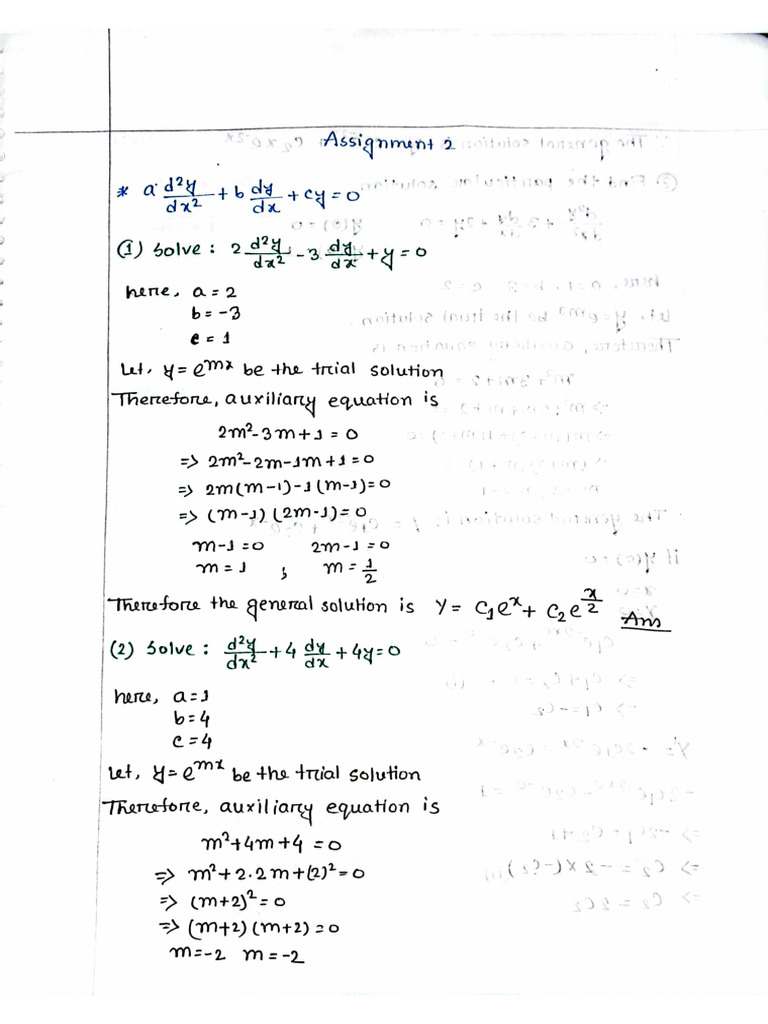 Assignment 2
* a d²y/dx² + b dy/dx + cy = 0
(1) Solve : 2 d²y/dx² - 3 dy/dx + y = 0
here, a = 2
b = -3
c = 1
Let, y = e^mx be the trial solution
Therefore, auxiliary equation is
2m² - 3m + 1 = 0
=> 2m² - 2m - 1m + 1 = 0
=> 2m(m-1) - 1(m-1) = 0
=> (m-1) (2m-1) = 0
m-1 = 0 2m-1 = 0
m = 1 ; m = 1/2
Therefore the general solution is y = c₁e^x + c₂e^(x/2) Ans
(2) Solve : d²y/dx² + 4 dy/dx + 4y = 0
here, a = 1
b = 4
c = 4
Let, y = e^mx be the trial solution
Therefore, auxiliary equation is
m² + 4m + 4 = 0
=> m² + 2.2m + (2)² = 0
=> (m+2)² = 0
=> (m+2) (m+2) = 0
m = -2 m = -2